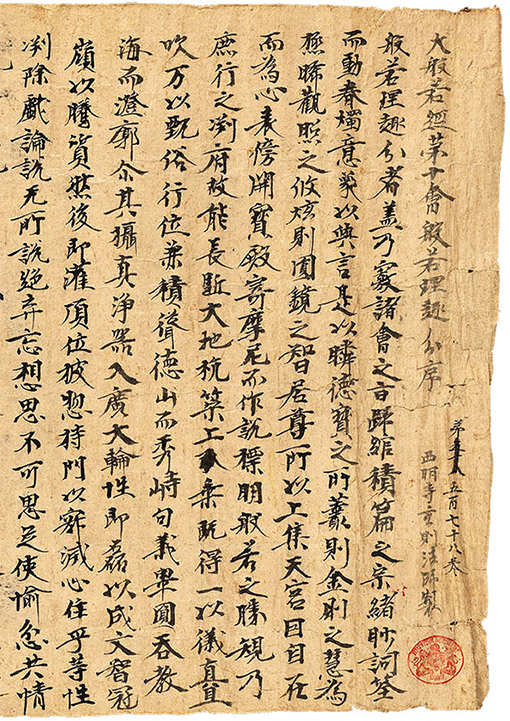 大般若經第十會般若理趣分序
五百七十八卷
西明寺玄則法師製
般若理趣分者蓋乃覈諸會之旨歸綰積篇之宗緒眇詞筌
而動眷燭意象以興言是以瞬德寶之所叢則金剛之慧為
極晞觀照之攸炫則圓鏡之智居尊所以上集天宮因自在
而為心表傍開寶殿寄摩尼而作說標明般若之勝規乃
庶行之渊府故能長驅大地枕策上乘既得一以儀真且
吹万以甄俗行位兼積聳德山而秀峙句義畢圓吞教
海而澄廓尒其攝真淨器入廣大輪性印磊以成文智冠
嶷以騰質然後即灌頂位披惣持門以寂滅心住乎等性
滌除戲論說无所說絕弃忘想思不可思足使愉忿共情